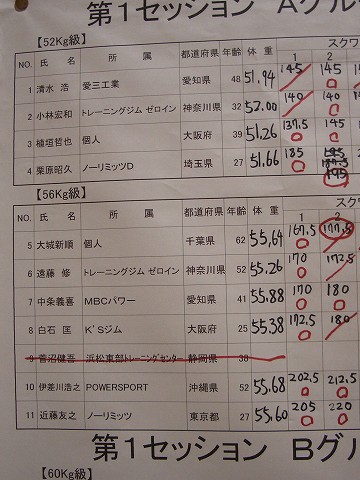 第1セッション Aグル
【52Kg級】
スクワ
NO. 氏 名 所 属 都道府県 年齢 体 重 1 2
1 清水 浩 愛三工業 愛知県 48 51.94 145 145
2 小林宏和 トレーニングジム ゼロイン 神奈川県 32 52.00 140 140
3 植垣哲也 個人 大阪府 39 51.26 137.5 145
4 栗原昭久 ノーリミッツD 埼玉県 27 51.66 185 195 187.5 195
【56Kg級】
スクワ
NO. 氏 名 所 属 都道府県 年齢 体 重 1 2
5 大城新順 個人 千葉県 62 55.64 167.5 177.5
6 遠藤 修 トレーニングジム ゼロイン 神奈川県 52 55.26 170 172.5
7 中条義喜 MBCパワー 愛知県 41 55.88 170 180
8 白石 匡 K'Sジム 大阪府 25 55.38 172.5 180
9 菅沼健吾 浜松東部トレーニングセンター 静岡県 38
10 伊差川浩之 POWERSPORT 沖縄県 52 55.68 202.5 212.5
11 近藤友之 ノーリミッツ 東京都 27 55.60 205 220
第1セッション Bグル
【60Kg級】